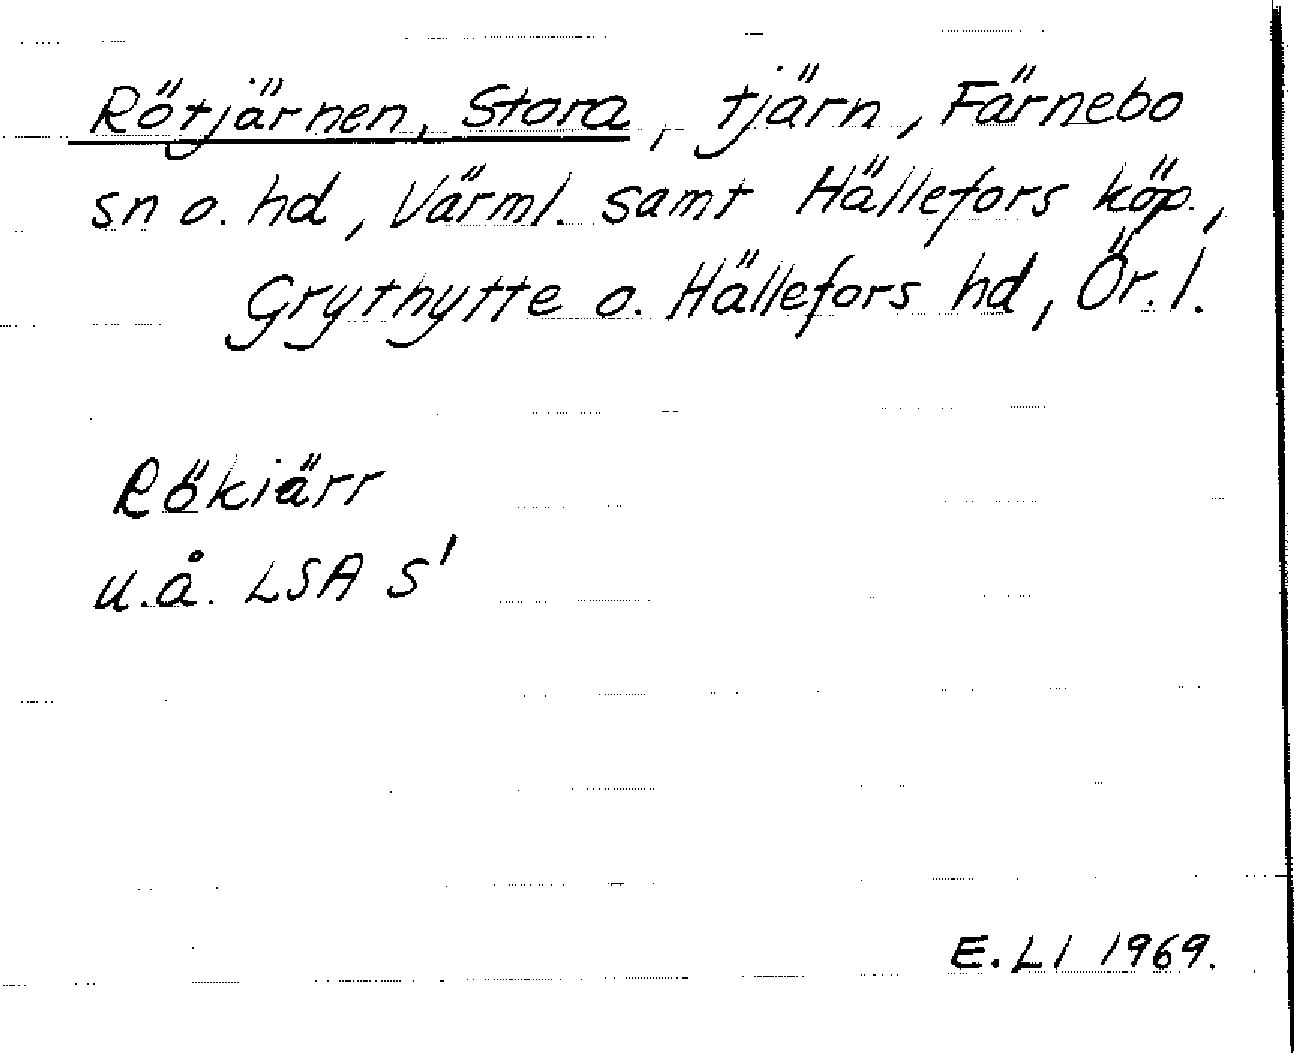 Rötjärnen, Stora, tjärn, Färnebo
sn o. hd, Värml. samt Hällefors köp.,
Grythytte o. Hällefors hd, Ör. l.
Rökiärr
u.å. LSA S'
E. Ll 1969.